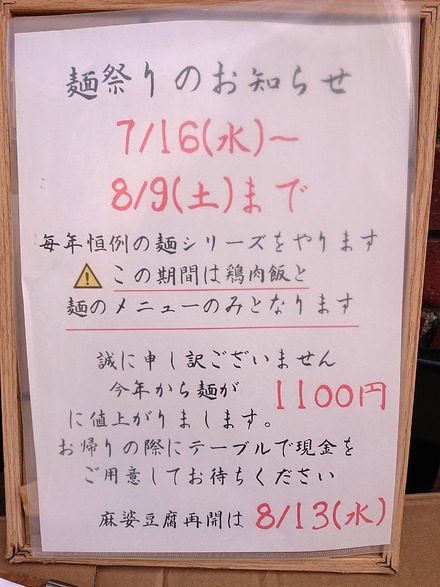 麺祭りのお知らせ
7/16(水)～
8/9(土)まで
毎年恒例の麺シリーズをやります
この期間は鶏肉飯と
麺のメニューのみとなります
誠に申し訳ございません
今年から麺が 1100円
に値上がりまします。
お帰りの際にテーブルで現金を
ご用意してお待ちください
麻婆豆腐再開は 8/13(水)